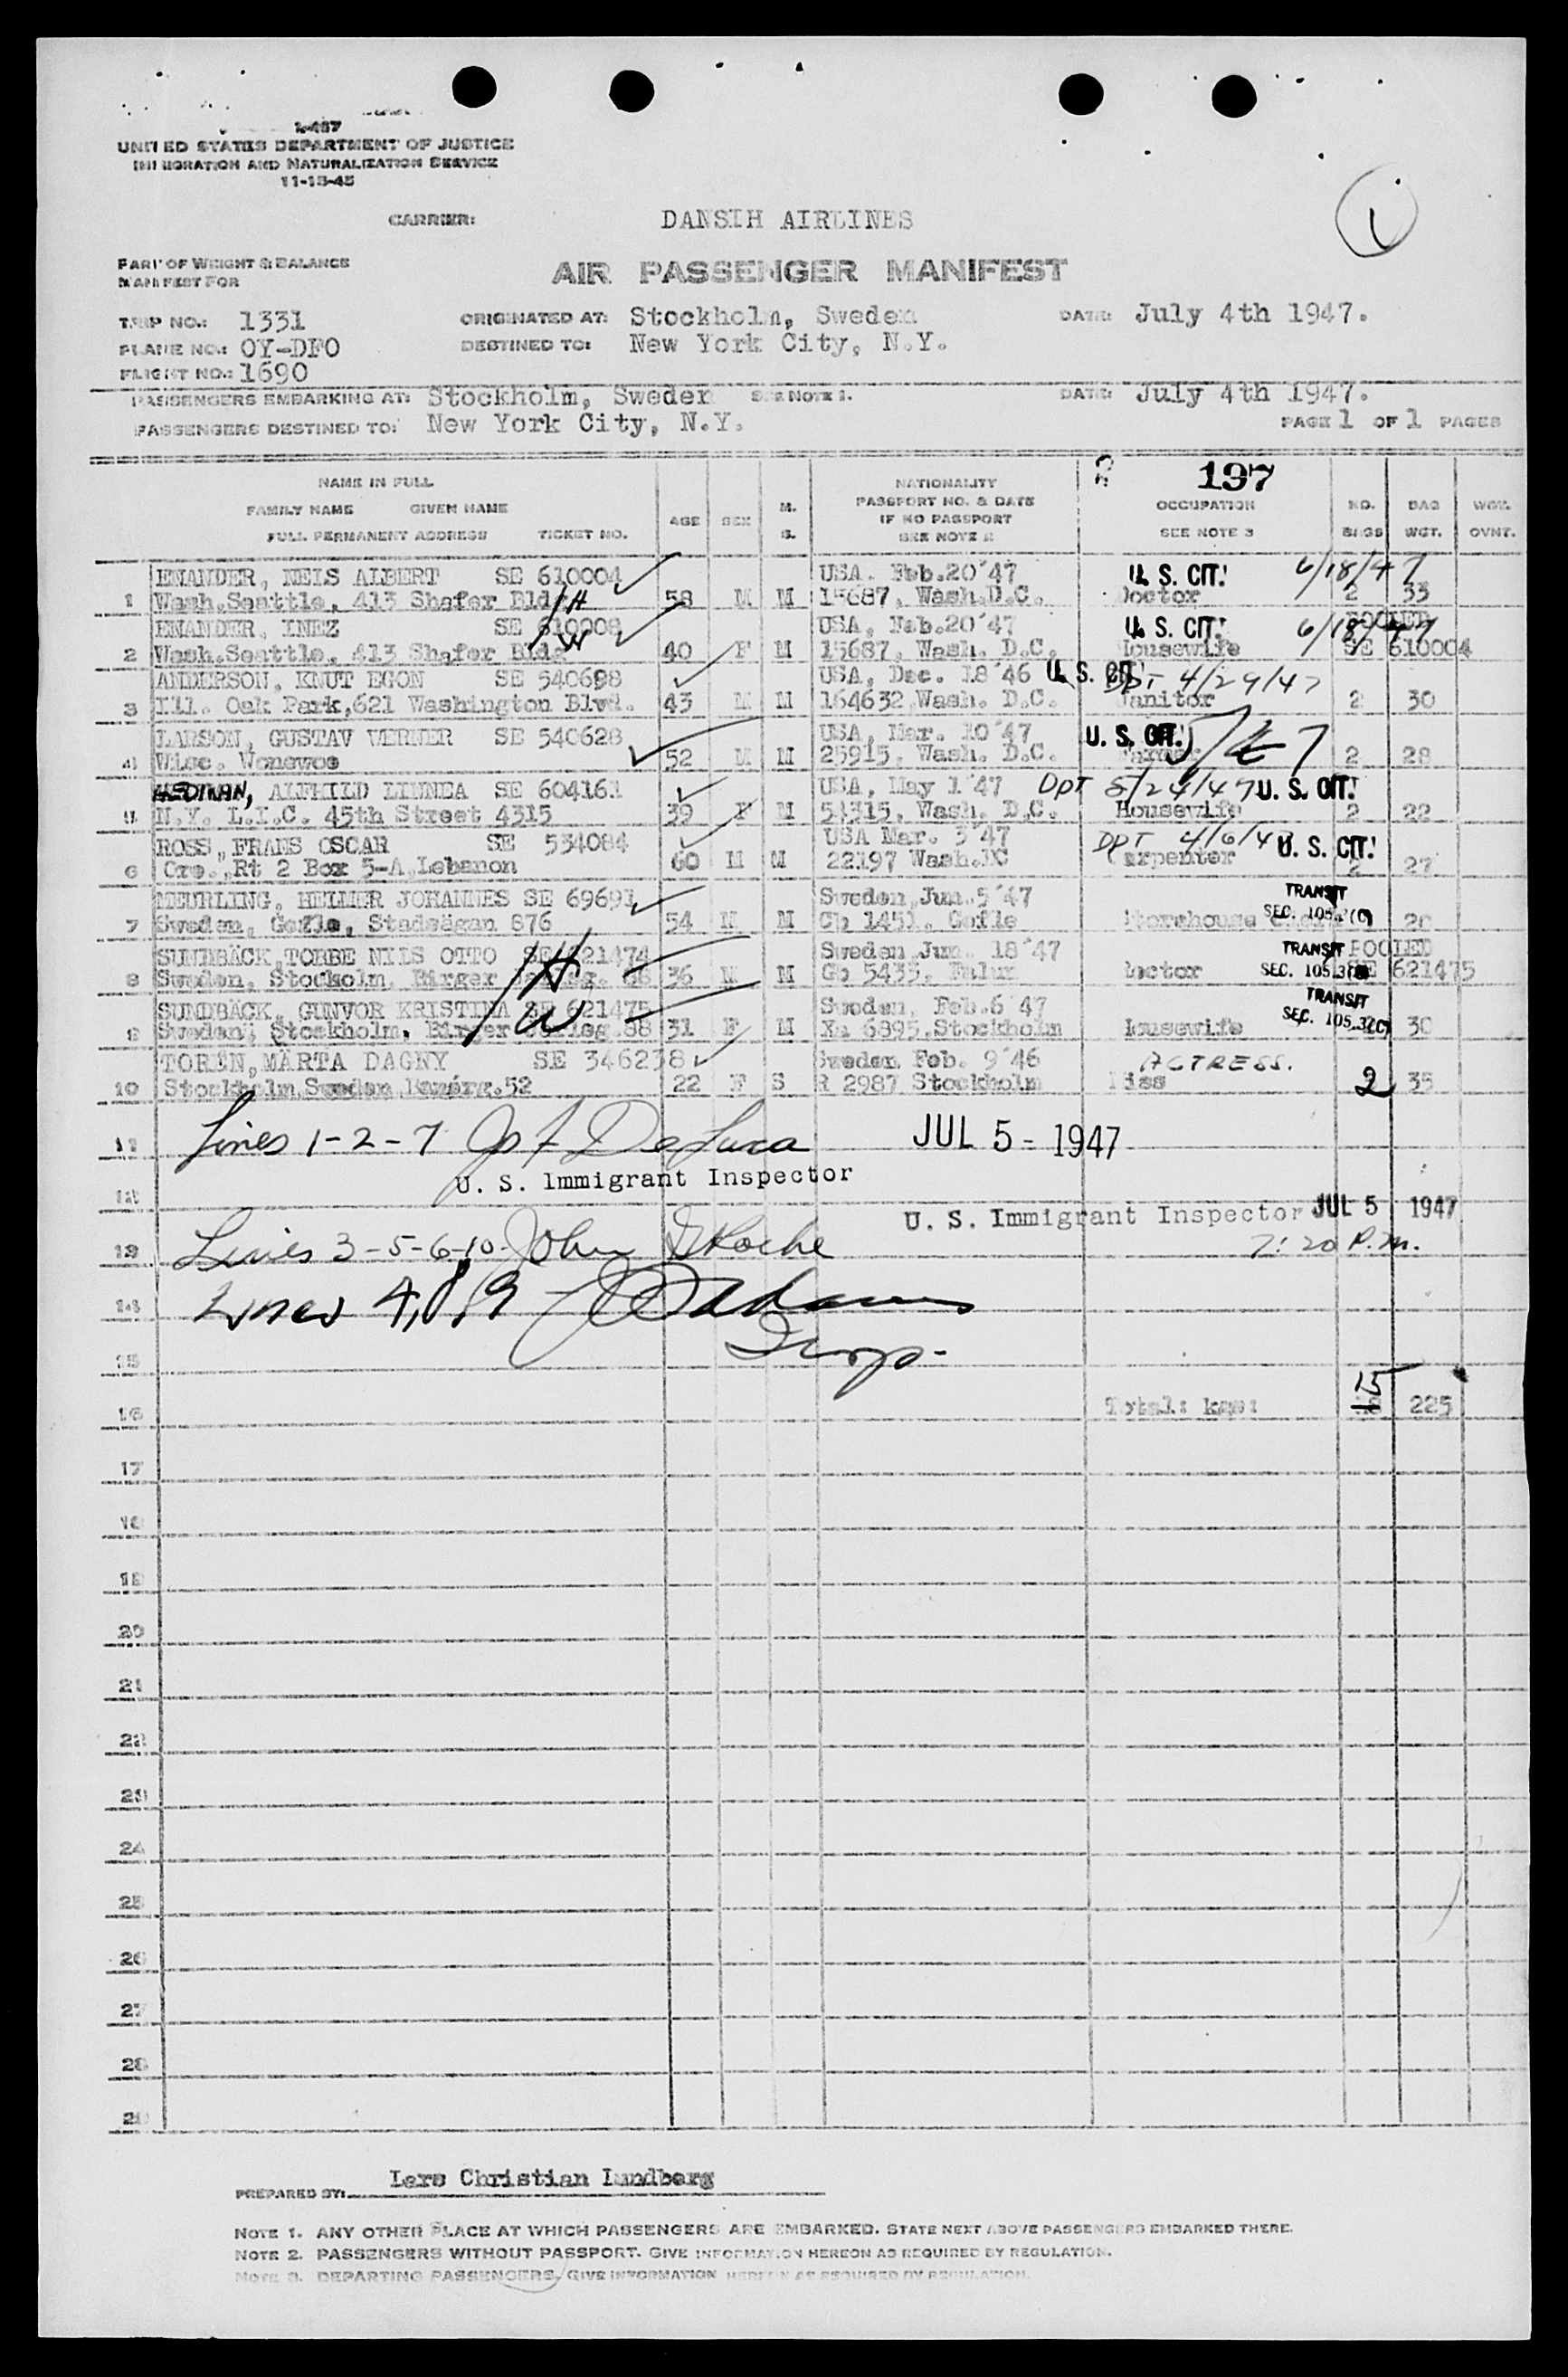 I-487
UNITED STATES DEPARTMENT OF JUSTICE
IMMIGRATION AND NATURALIZATION SERVICE
11-15-45
CARRIER: DANSIH AIRLINES
1
PART OF WEIGHT & BALANCE
MANIFEST FOR
AIR PASSENGER MANIFEST
TRIP NO.: 1331 ORIGINATED AT: Stockholm, Sweden DATE: July 4th 1947.
PLANE NO.: OY-DFO DESTINED TO: New York City, N.Y.
FLIGHT NO.: 1690
PASSENGERS EMBARKING AT: Stockholm, Sweden SEE NOTE 1. DATE: July 4th 1947.
PASSENGERS DESTINED TO: New York City, N.Y. PAGE 1 OF 1 PAGES
197
NAME IN FULL
FAMILY NAME GIVEN NAME
FULL PERMANENT ADDRESS TICKET NO.
AGE SEX M. S.
NATIONALITY
PASSPORT NO. & DATE
IF NO PASSPORT
SEE NOTE 2
OCCUPATION
SEE NOTE 3
NO. BAGS BAG WGT. WGT. OVNT.
ENANDER, NELS ALBERT SE 610004 USA. Feb.20'47 U. S. CIT. 6/18/47
1 Wash.Seattle, 413 Shafer Bldg /H 58 M M 15687, Wash.D.C. Doctor 2 33
ENANDER, INEZ SE 610008 USA, Feb.20'47 U. S. CIT. 6/18/47 POOLED
2 Wash.Seattle, 413 Shafer Bldg /W 40 F M 15687, Wash. D.C. Housewife SE 610004
ANDERSON, KNUT EGON SE 540698 USA, Dec. 18'46 U. S. CIT. DPT 4/29/47
3 Ill. Oak Park,621 Washington Blvd. 43 M M 164632 Wash. D.C. Janitor 2 30
LARSON, GUSTAV VERNER SE 540628 USA, Mar. 10'47 U. S. CIT.
4 Wisc. Wonewoc 52 M M 25915, Wash. D.C. Farmer 2 28
HEDMAN, ALFHILD LINNEA SE 604161 USA, May 1'47 DPT 5/24/47 U. S. CIT.
N.Y. L.I.C. 45th Street 4315 39 F M 51315, Wash. D.C. Housewife 2 22
ROSS, FRANS OSCAR SE 534084 USA Mar. 3'47 DPT 4/6/47 U. S. CIT.
6 Ore.,Rt 2 Box 5-A,Lebanon 60 M M 22197 Wash.DC Carpenter 2 27
MEURLING, HELMER JOHANNES SE 69691 Sweden,Jun.5'47 TRANSIT
7 Sweden, Gefle, Stadsägan 876 54 M M Cb 1451, Gefle Storehouse SEC. 105.3(C) 20
SUNDBÄCK,TORBE NILS OTTO SE 621474 Sweden Jun. 18'47 TRANSIT POOLED
8 Sweden, Stockholm, Birger Jarlsg. 88 /H 36 M M Gb 5435, Falun Doctor SEC. 105.3(C) SE 621475
SUNDBÄCK, GUNVOR KRISTINA SE 621475 Sweden, Feb.6'47 TRANSIT
9 Sweden, Stockholm, Birger Jarlsg.88 /W 31 F M Xa 6895,Stockholm Housewife SEC. 105.3(C) 30
TORÉN,MÄRTA DAGNY SE 346238 Sweden Feb. 9'46 ACTRESS.
10 Stockholm,Sweden 52 22 F S R 2987 Stockholm Miss 2 35
11 Lines 1-2-7 DeLuca JUL 5- 1947
U. S. Immigrant Inspector
12 U. S. Immigrant Inspector JUL 5 1947
13 Lines 3-5-6-10- John Roche 7:20 P.M.
14 Lines 4,8,9 Adams
Insp.
15
15
16 Total: kgs: 225
17
18
19
20
21
22
23
24
25
26
27
28
29
PREPARED BY: Lars Christian Lundberg
NOTE 1. ANY OTHER PLACE AT WHICH PASSENGERS ARE EMBARKED. STATE NEXT ABOVE PASSENGERS EMBARKED THERE.
NOTE 2. PASSENGERS WITHOUT PASSPORT. GIVE INFORMATION HEREON AS REQUIRED BY REGULATION.
NOTE 3. DEPARTING PASSENGERS, GIVE INFORMATION HEREON AS REQUIRED BY REGULATION.